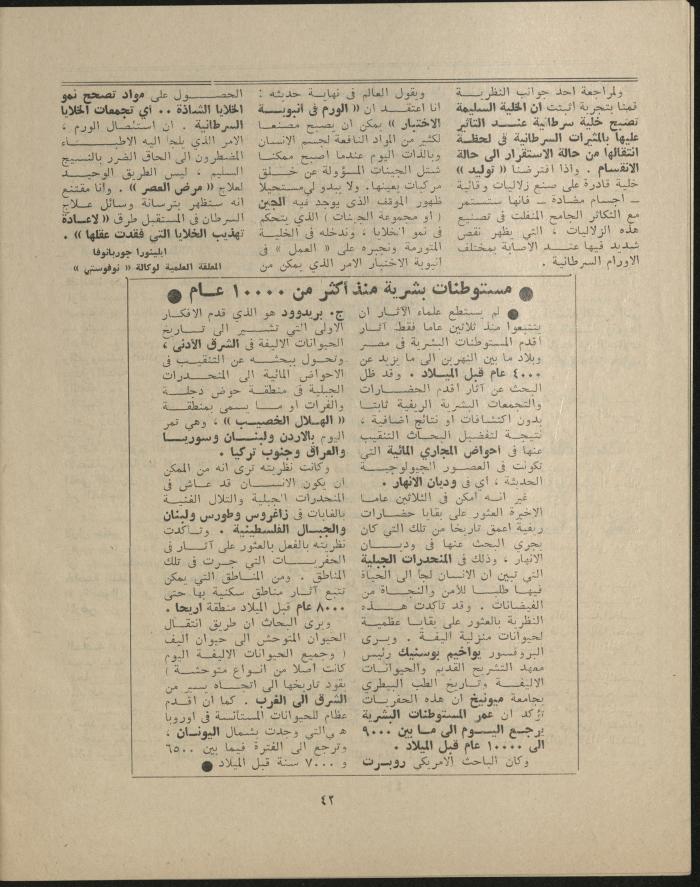 ولمراجعة احد جوانب النظريــة
قمنا بتجربة اثبتت ان الخلية السليمة
تصبح خلية سرطانية عنــد التاثير
عليها بالمثيرات السرطانية في لحظــة
انتقالها من حالة الاستقرار الى حالة
الانقسام . واذا افترضنا « توليد »
خلية قادرة على صنع زلاليات وقائية
ــ اجسام مضادة ــ فانها ستستمر
مع التكاثر الجامح المنفلت في تصنيع
هذه الزلاليات ، التي يظهر نقص
شديد فيها عنــد الاصابة بمختلف
الاورام السرطانية .
ويقول العالم في نهاية حديثه :
انا اعتقــد ان « الورم في انبوبــة
الاختبار » يمكن ان يصبح مصنعــا
لكثير من المواد النافعة لجسم الانسان
وبالذات اليوم عندما اصبح ممكنــا
شتل الجينات المسؤولة عن خــلق
مركبات بعينها. ولا يبدو لي مستحيلا
ظهور الموقف الذي يوجد فيه الجين
( او مجموعة الجينات ) الذي يتحكم
في نمو الخلايا ، وندخله في الخليــة
المتورمة ونجبره على « العمل » في
انبوبة الاختبار الامر الذي يمكن من
الحصــول على مواد تصحح نمو
الخلايا الشاذة .. اي تجمعات الخلايا
السرطانية . ان استئصال الورم ،
الامر الذي يلجا اليه الاطبــاء
المضطرون الى الحاق الضرر بالنسيج
السليم ، ليس الطريق الوحيــد
لعلاج « مرض العصر » . وانا مقتنع
انه ستظهر بترسانة وسائل عــلاج
السرطان في المستقبل طرق « لاعــادة
تهذيب الخلايا التي فقدت عقلها » .
ايلينورا جوربانوفا
المعلقة العلمية لوكالة « نوفوستي »
● مستوطنات بشرية منذ أكثر من ١٠٠٠٠ عــام ●
● لم يستطع علماء الآثــار ان
يتتبعوا منذ ثلاثين عاما فقط آثــار
اقدم المستوطنات البشرية في مصــر
وبلاد ما بين النهرين الى ما يزيد عن
٤٠٠٠ عام قبل الميــلاد . وقد ظل
البحث عن آثار اقدم الحضــارات
والتجمعات البشرية الريفية ثابتــا
بدون اكتشافات او نتائج اضافيــة ،
نتيجــة لتفضيل البحــاث التنقيب
عنها في احواض المجاري المائية التي
تكونت في العصــور الجيولوجيــة
الحديثة ، اي في وديان الانهار .
غير انــه امكن في الثلاثين عامــا
الاخيرة العثور على بقايا حضــارات
ريفية اعمق تاريخا من تلك التي كان
يجري البحث عنها في وديــان
الانهار ، وذلك في المنحدرات الجبلية
التي تبين ان الانسان لجأ الى الحياة
فيهــا طلبــا للأمن والنجــاة من
الفيضانات . وقد تأكدت هــذه
النظرية بالعثور على بقايــا عظميــة
لحيوانات منزلية اليفــة . ويــرى
البروفسور يواخيم بوسنيك رئيس
معهد التشريح القديم والحيوانــات
الاليفــة وتــاريخ الطب البيطري
بجامعة ميونيخ ان هذه الحفريــات
تؤكد ان عمر المستوطنات البشرية
يرجــع اليــوم الى مــا بين ٩٠٠٠
الى ١٠٠٠٠ عام قبل الميلاد .
وكان الباحث الامريكي روبــرت
ج. بريدوود هو الذي قدم الافكــار
الاولى التي تشيــر الى تــاريخ
الحيوانات الاليفة في الشرق الادنى ،
وتحول ببحثــه عن التنقيــب في
الاحواض المائية الى المنحــدرات
الجبلية في منطقة حوض دجلــة
والفرات او مــا يسمى بمنطقــة
« الهــلال الخصيــب » ، وهي تمر
اليوم بالاردن ولبنــان وسوريــا
والعراق وجنوب تركيا .
وكانت نظريته ترى انه من الممكن
ان يكون الانســان قد عــاش في
المنحدرات الجبلية والتلال الغنيــة
بالغابات في زاغروس وطورس ولبنان
والجبــال الفلسطينية . وتــأكدت
نظريته بالفعل بالعثور على آثــار في
الحفريــات التي جــرت في تلك
المناطق . ومن المنــاطق التي يمكن
تتبع آثــار مناطق سكنية بها حتى
٨٠٠٠ عام قبل الميلاد منطقة اريحا .
ويرى البحاث ان طريق انتقــال
الحيوان المتوحش الى حيوان اليف
( وجميع الحيوانات الاليفــة اليوم
كانت اصلا من انــواع متوحشــة )
يقود تاريخها الى اتجــاه يسير من
الشرق الى الغرب . كما ان اقــدم
عظام للحيوانات المستأنسة في اوروبا
هي التي وجدت بشمال اليونــان ،
وترجع الى الفترة فيما بين ٦٥٠٠
و ٧٠٠٠ سنة قبل الميلاد ●
٤٢